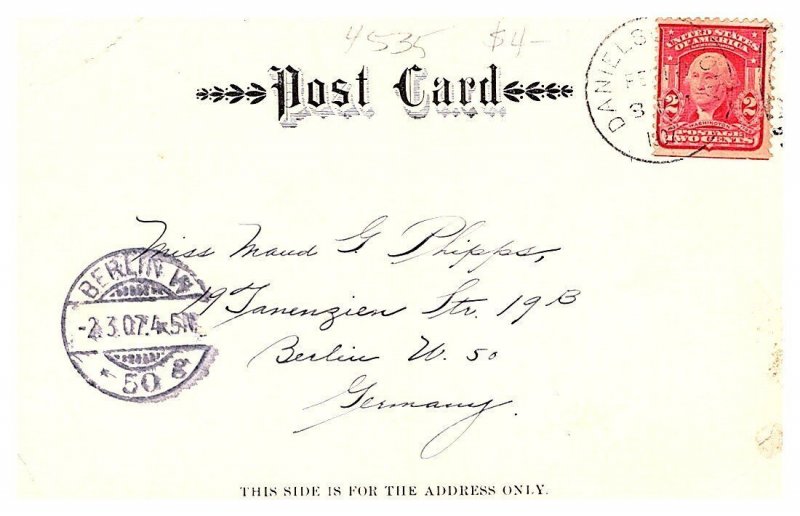 4535 $4-
Post Card
DANIELS
FE
3
190
UNITED STATES
OF AMERICA
2 2
WASHINGTON
POSTAGE
TWO CENTS
Miss Maud G. Phipps,
19 Tauenzien Str. 19 B
Berlin W. 50
Germany.
BERLIN W
-2.3.07.4-5N
* 50 g
THIS SIDE IS FOR THE ADDRESS ONLY.